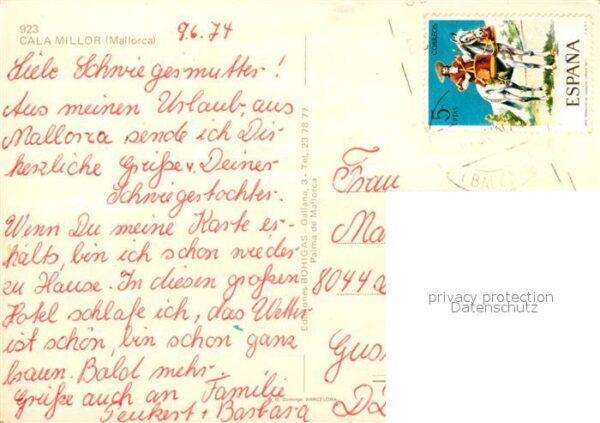 923
CALA MILLOR (Mallorca)
9.6.74
Liebe Schwiegermutter!
Aus meinen Urlaub, aus
Mallorca sende ich Dir
herzliche Grüße v. Deiner
Schwiegertochter.
Wenn Du meine Karte er-
hälts, bin ich schon wieder
zu Hause. In diesen großen
Hotel schlafe ich, das Wetter
ist schön, bin schon ganz
braun. Bald mehr.
Grüße auch an Familie
+ Barbara
Ediciones BOHIGAS - Galiana, 3 - Tel. 23 78 77
Palma de Mallorca
BARCELONA
CORREOS
5 PTAS
ESPAÑA
Frau
Ma
8044
Gus
D
privacy protection
Datenschutz